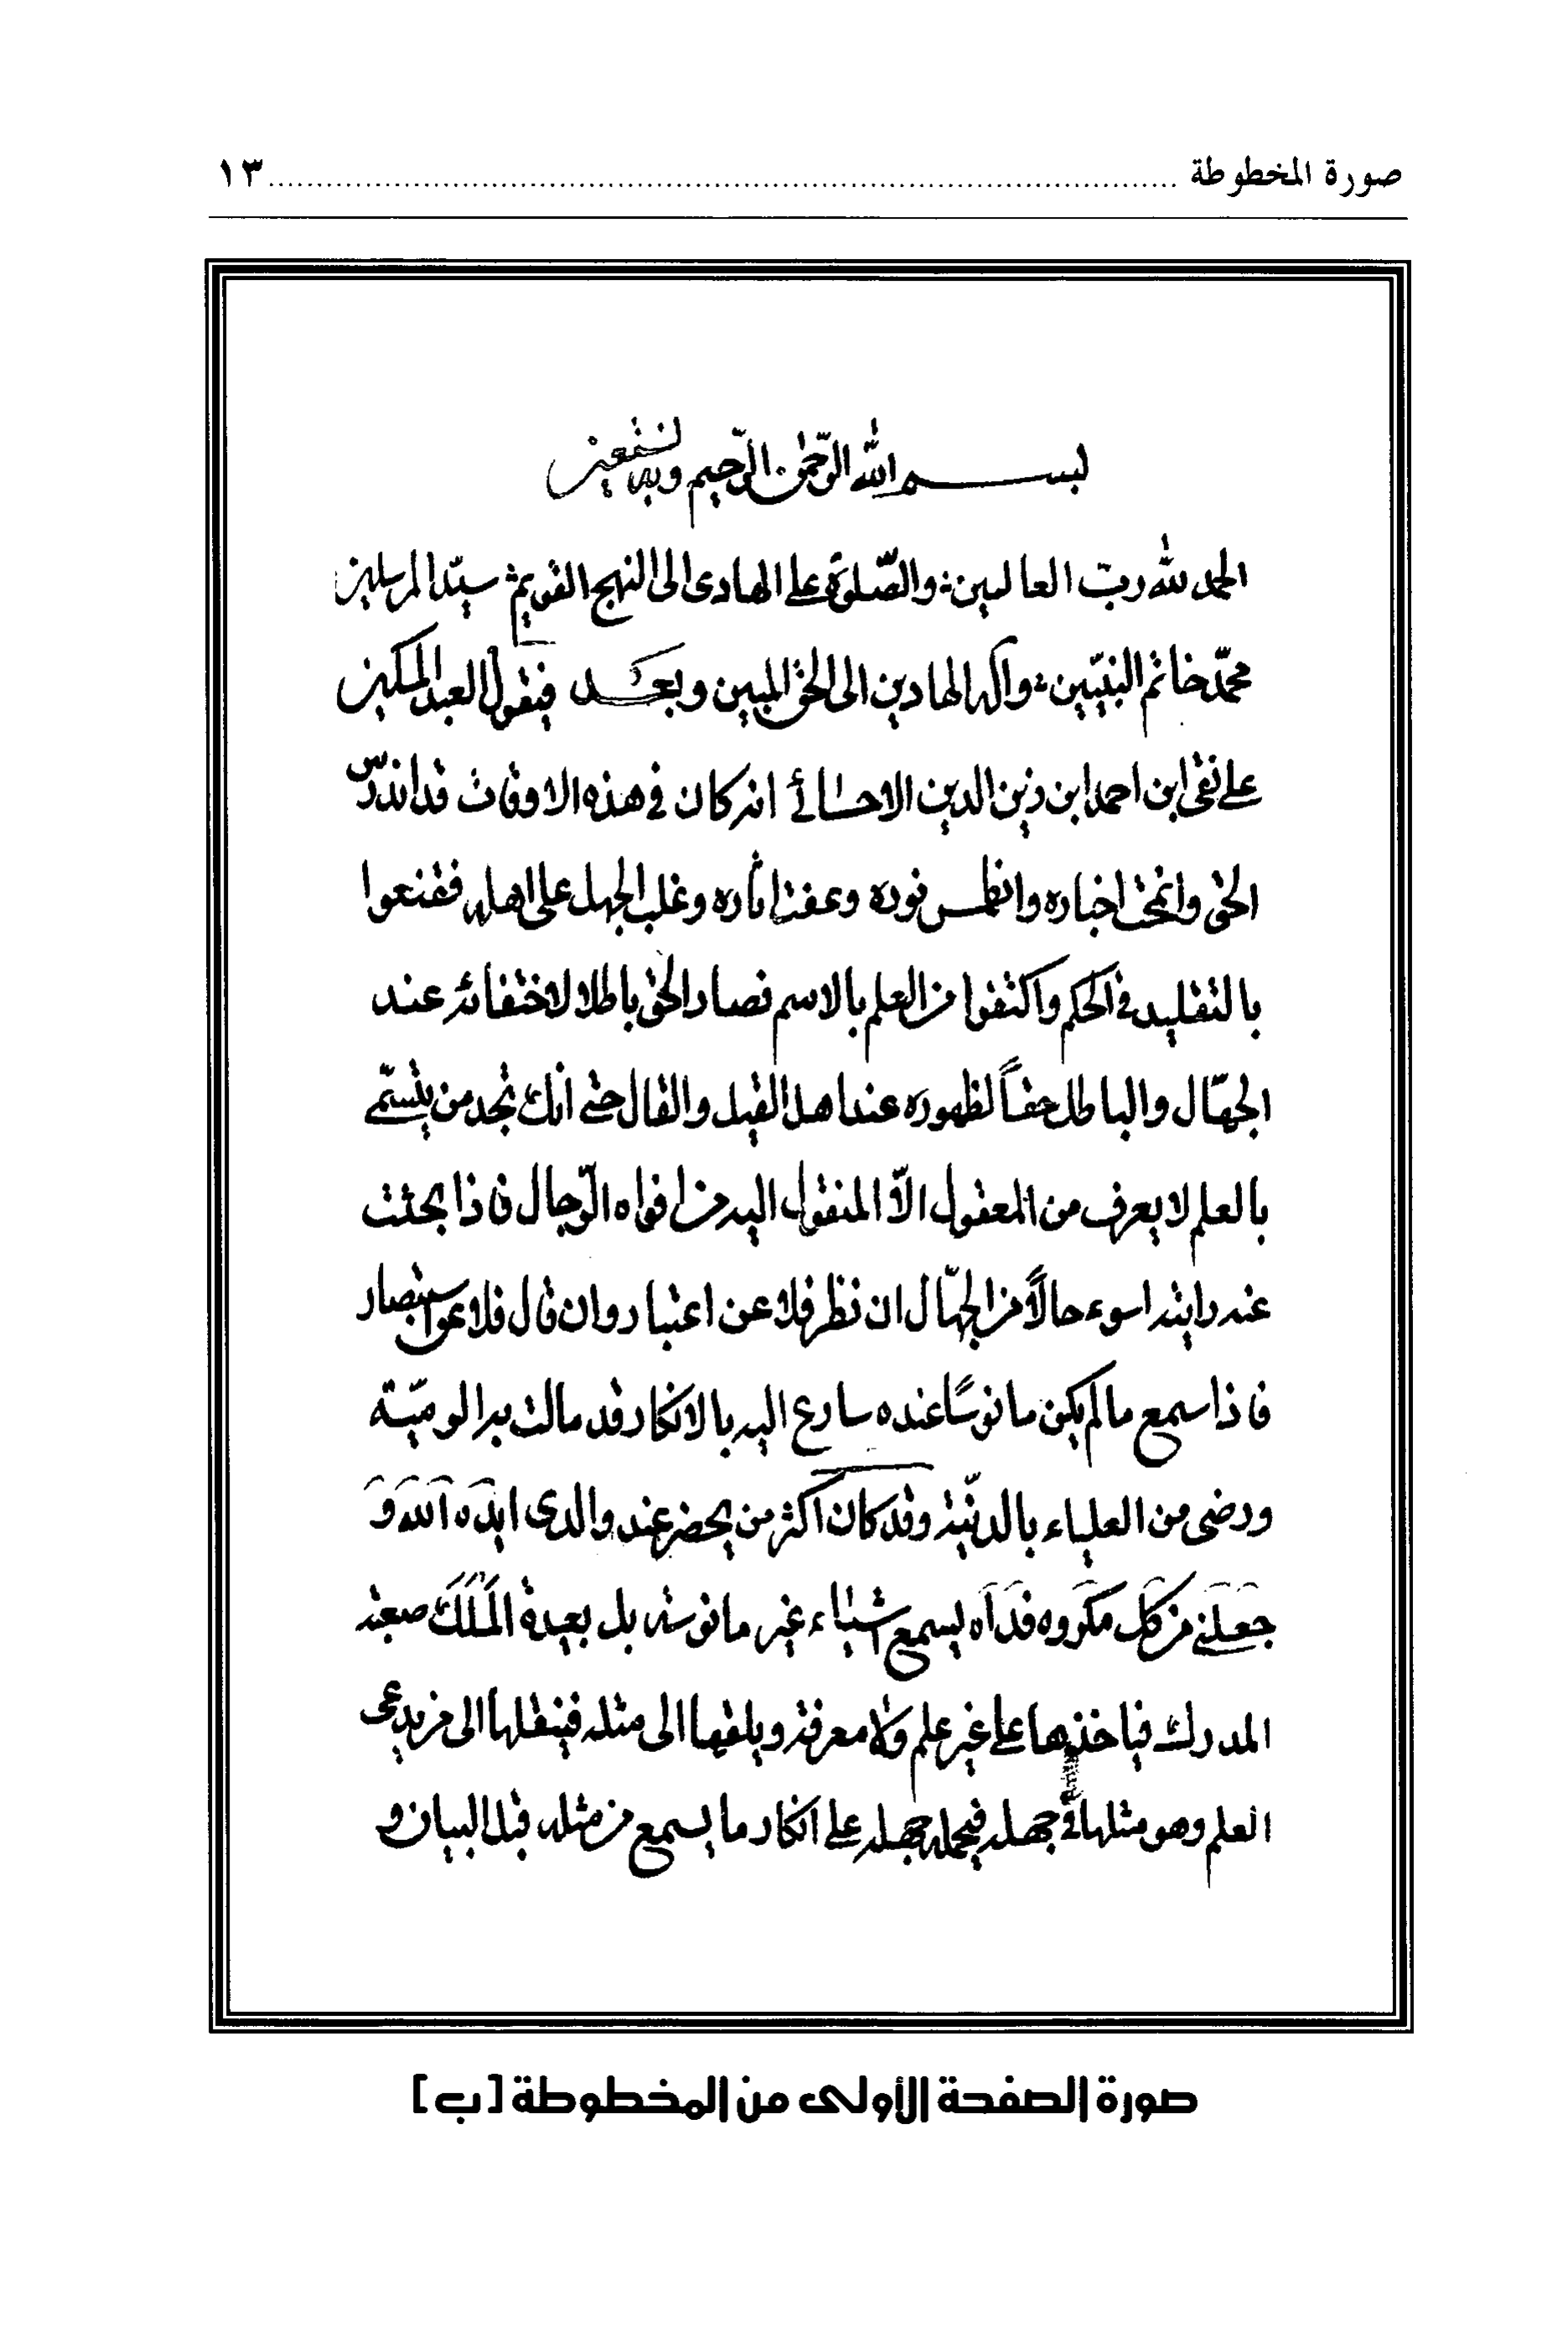 صورة المخطوطة ........................................ ١٣
بسم الله الرّحمن الرّحيم وبه نستعين
الحمد لله ربّ العالمين والصّلوة على الهادى الى النهج القويم سيّد المرسلين
محمّد خاتم النبيّين وآله الهادين الى الحق المبين وبعد فيقول العبد المسكين
على نقى ابن احمد ابن زين الدين الاحسائى انه كان في هذه الاوقات قد اندرس
الحق وانمحت اخباره وانطمس نوره وعفت اثاره وغلب الجهل على اهله فقنعوا
بالتقليد في الحكم واكتفوا من العلم بالاسم فصار الحق باطلا لاختفائه عند
الجهّال والباطل حقاً لظهوره عند اهل القيل والقال حتى انك تجد من يتسمّى
بالعلم لا يعرف من المعقول الاّ المنقول اليه من افواه الرّجال فاذا بحثت
عنه رايته اسوء حالاً من الجهّال ان نظر فلا عن اعتبار وان قال فلا عن استبصار
فاذا سمع ما لم يكن مانوسًا عنده سارع اليه بالانكار قد مالت به الوميّة
ورضى من العلياء بالدنيّة وقد كان اكثر من يحضر عند والدى ايّده الله و
جعلنى من كل مكروه فداه يسمع اشياء غير مانوسة بل بعيدة المسلك صعبة
المدرك فياخذها على غير علم ولا معرفة ويلقيها الى مثله فينقلها الى من يدعى
العلم وهو مثلها في جهله فيحمله جهله على انكار ما يسمع من مثله قبل البيان و
صورة الصفحة الأولى من المخطوطة [ب]